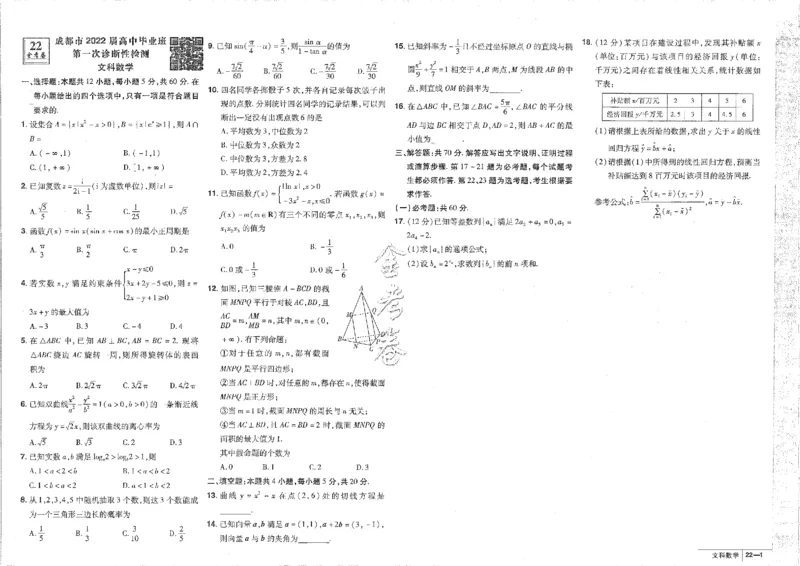 22
金考卷
成都市2022届高中毕业班
第一次诊断性检测
文科数学
一、选择题:本题共12小题,每小题5分,共60分.在
每小题给出的四个选项中,只有一项是符合题目
要求的.
1. 设集合A={x|x²-x>0},B={x|eˣ≥1},则A∩
B=
A. (-∞,1) B. (-1,1)
C. (1,+∞) D. [1,+∞)
2. 已知复数z=i/(2i-1)(i为虚数单位),则|z|=
A. √5/5 B. 1/5 C. 1/25 D. √5
3. 函数f(x)=sin x(sin x+cos x)的最小正周期是
A. π/3 B. π/2 C. π D. 2π
4. 若实数x,y满足约束条件{x-y≤0 3x+2y-5≤0 2x-y+1≥0,则z=
3x+y的最大值为
A. -3 B. 3 C. -4 D. 4
5. 在△ABC中,已知AB⊥BC,AB=BC=2. 现将
△ABC绕边AC旋转一周,则所得旋转体的表面
积为
A. 2π B. 2√2π C. 3√2π D. 4√2π
6. 已知双曲线x²/a²-y²/b²=1(a>0,b>0)的一条渐近线
方程为y=√2x,则该双曲线的离心率为
A. √5 B. √3 C. 2 D. 3
7. 已知实数a,b满足logₐ2>log_b2>1,则
A. 1<a<2<b B. 1<a<b<2
C. 1<b<a<2 D. a<1<b<2
8. 从1,2,3,4,5中随机抽取3个数,则这3个数能成
为一个三角形三边长的概率为
A. 1/5 B. 1/3 C. 3/10 D. 2/5
9. 已知sin(π/4-α)=3/5,则sin α/(1-tan α)的值为
A. 7√2/60 B. -7√2/60 C. -7√2/30 D. 7√2/30
10. 四名同学各掷骰子5次,并各自记录每次骰子出
现的点数.分别统计四名同学的记录结果,可以判
断出一定没有出现点数6的是
A. 平均数为3,中位数为2
B. 中位数为3,众数为2
C. 中位数为3,方差为2.8
D. 平均数为2,方差为2.4
11. 已知函数f(x)={|ln x|,x>0 -3x²-x,x≤0. 若函数g(x)=
f(x)-m(m∈R)有三个不同的零点x₁,x₂,x₃,则
x₁x₂x₃的值为
A. 0 B. -1/3
C. 0或-1/3 D. 0或-1/6
12. 如图,已知三棱锥A-BCD的截
面MNPQ平行于对棱AC,BD,且
AC/BD=m,AM/MB=n,其中m,n∈(0,
+∞). 有下列命题:
①对于任意的m,n,都有截面
MNPQ是平行四边形;
②当AC⊥BD时,对任意的m,都存在n,使得截面
MNPQ是正方形;
③当m=1时,截面MNPQ的周长与n无关;
④当AC⊥BD,且AC=BD=2时,截面MNPQ的
面积的最大值为1.
其中假命题的个数为
A. 0 B. 1 C. 2 D. 3
二、填空题:本大题共4小题,每小题5分,共20分.
13. 曲线y=x²-x在点(2,6)处的切线方程是
14. 已知向量a,b满足a=(1,1),a+2b=(3,-1),
则向量a与b的夹角为
15. 已知斜率为-1/3且不经过坐标原点O的直线与椭
圆x²/9+y²/7=1相交于A,B两点,M为线段AB的中
点,则直线OM的斜率为
16. 在△ABC中,已知∠BAC=5π/6,∠BAC的平分线
AD与边BC相交于点D,AD=2,则AB+AC的最
小值为
三、解答题:共70分.解答应写出文字说明,证明过程
或演算步骤.第17~21题为必考题,每个试题考
生都必须作答.第22、23题为选考题,考生根据要
求作答.
(一)必考题:共60分.
17. (12分)已知等差数列{aₙ}满足2a₂+a₅=0,a₇=
2a₄-2.
(1)求{aₙ}的通项公式;
(2)设bₙ=2^aₙ,求数列{bₙ}的前n项和.
18. (12分)某项目在建设过程中,发现其补贴额x
(单位:百万元)与该项目的经济回报y(单位:
千万元)之间存在着线性相关关系,统计数据如
下表:
补贴额x/百万元 2 3 4 5 6
经济回报y/千万元 2.5 3 4 4.5 6
(1)请根据上表所给的数据,求出y关于x的线性
回归方程ŷ=b̂x+â;
(2)请根据(1)中所得到的线性回归方程,预测当
补贴额达到8百万元时该项目的经济回报.
参考公式:b̂=∑(xᵢ-x̄)(yᵢ-ȳ)/∑(xᵢ-x̄)²,â=ȳ-b̂x̄.
金考卷
文科数学 22—1